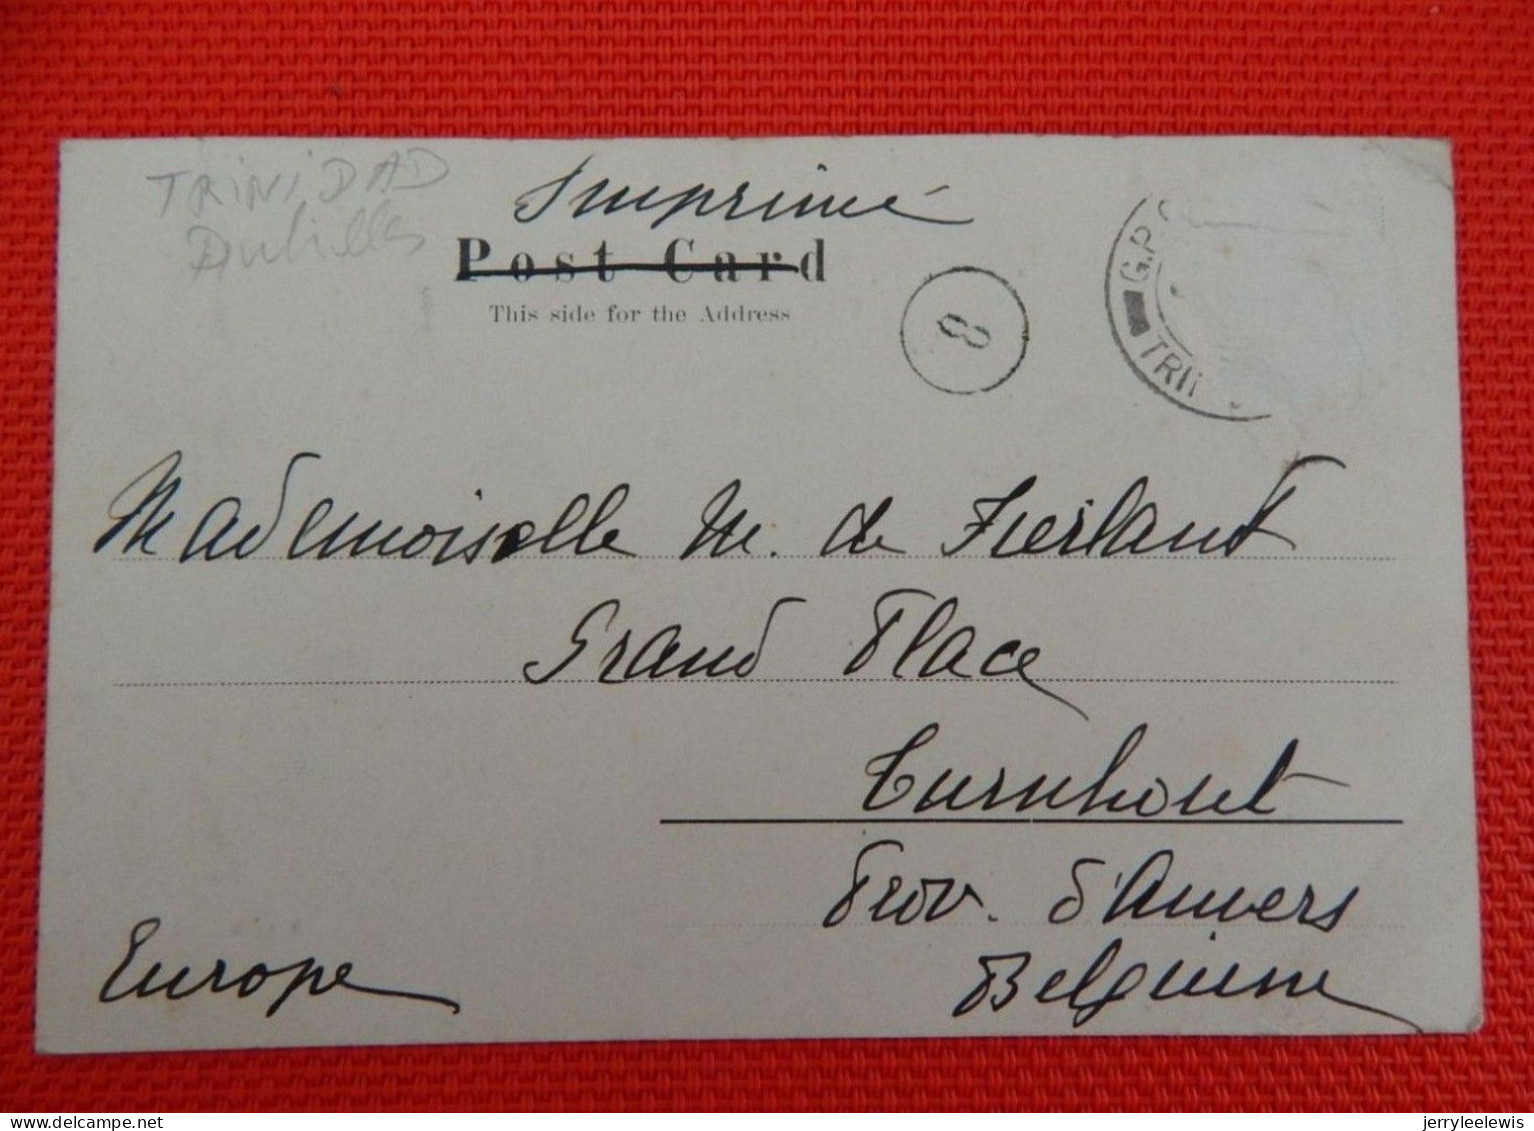 TRINIDAD
Antilles
Imprimé
Post Card
This side for the Address
8
G.P.
TRI
Mademoiselle M. de Fierlant
Grand Place
Turnhout
Prov. d'Anvers
Europe
Belgium
jerryleelewis